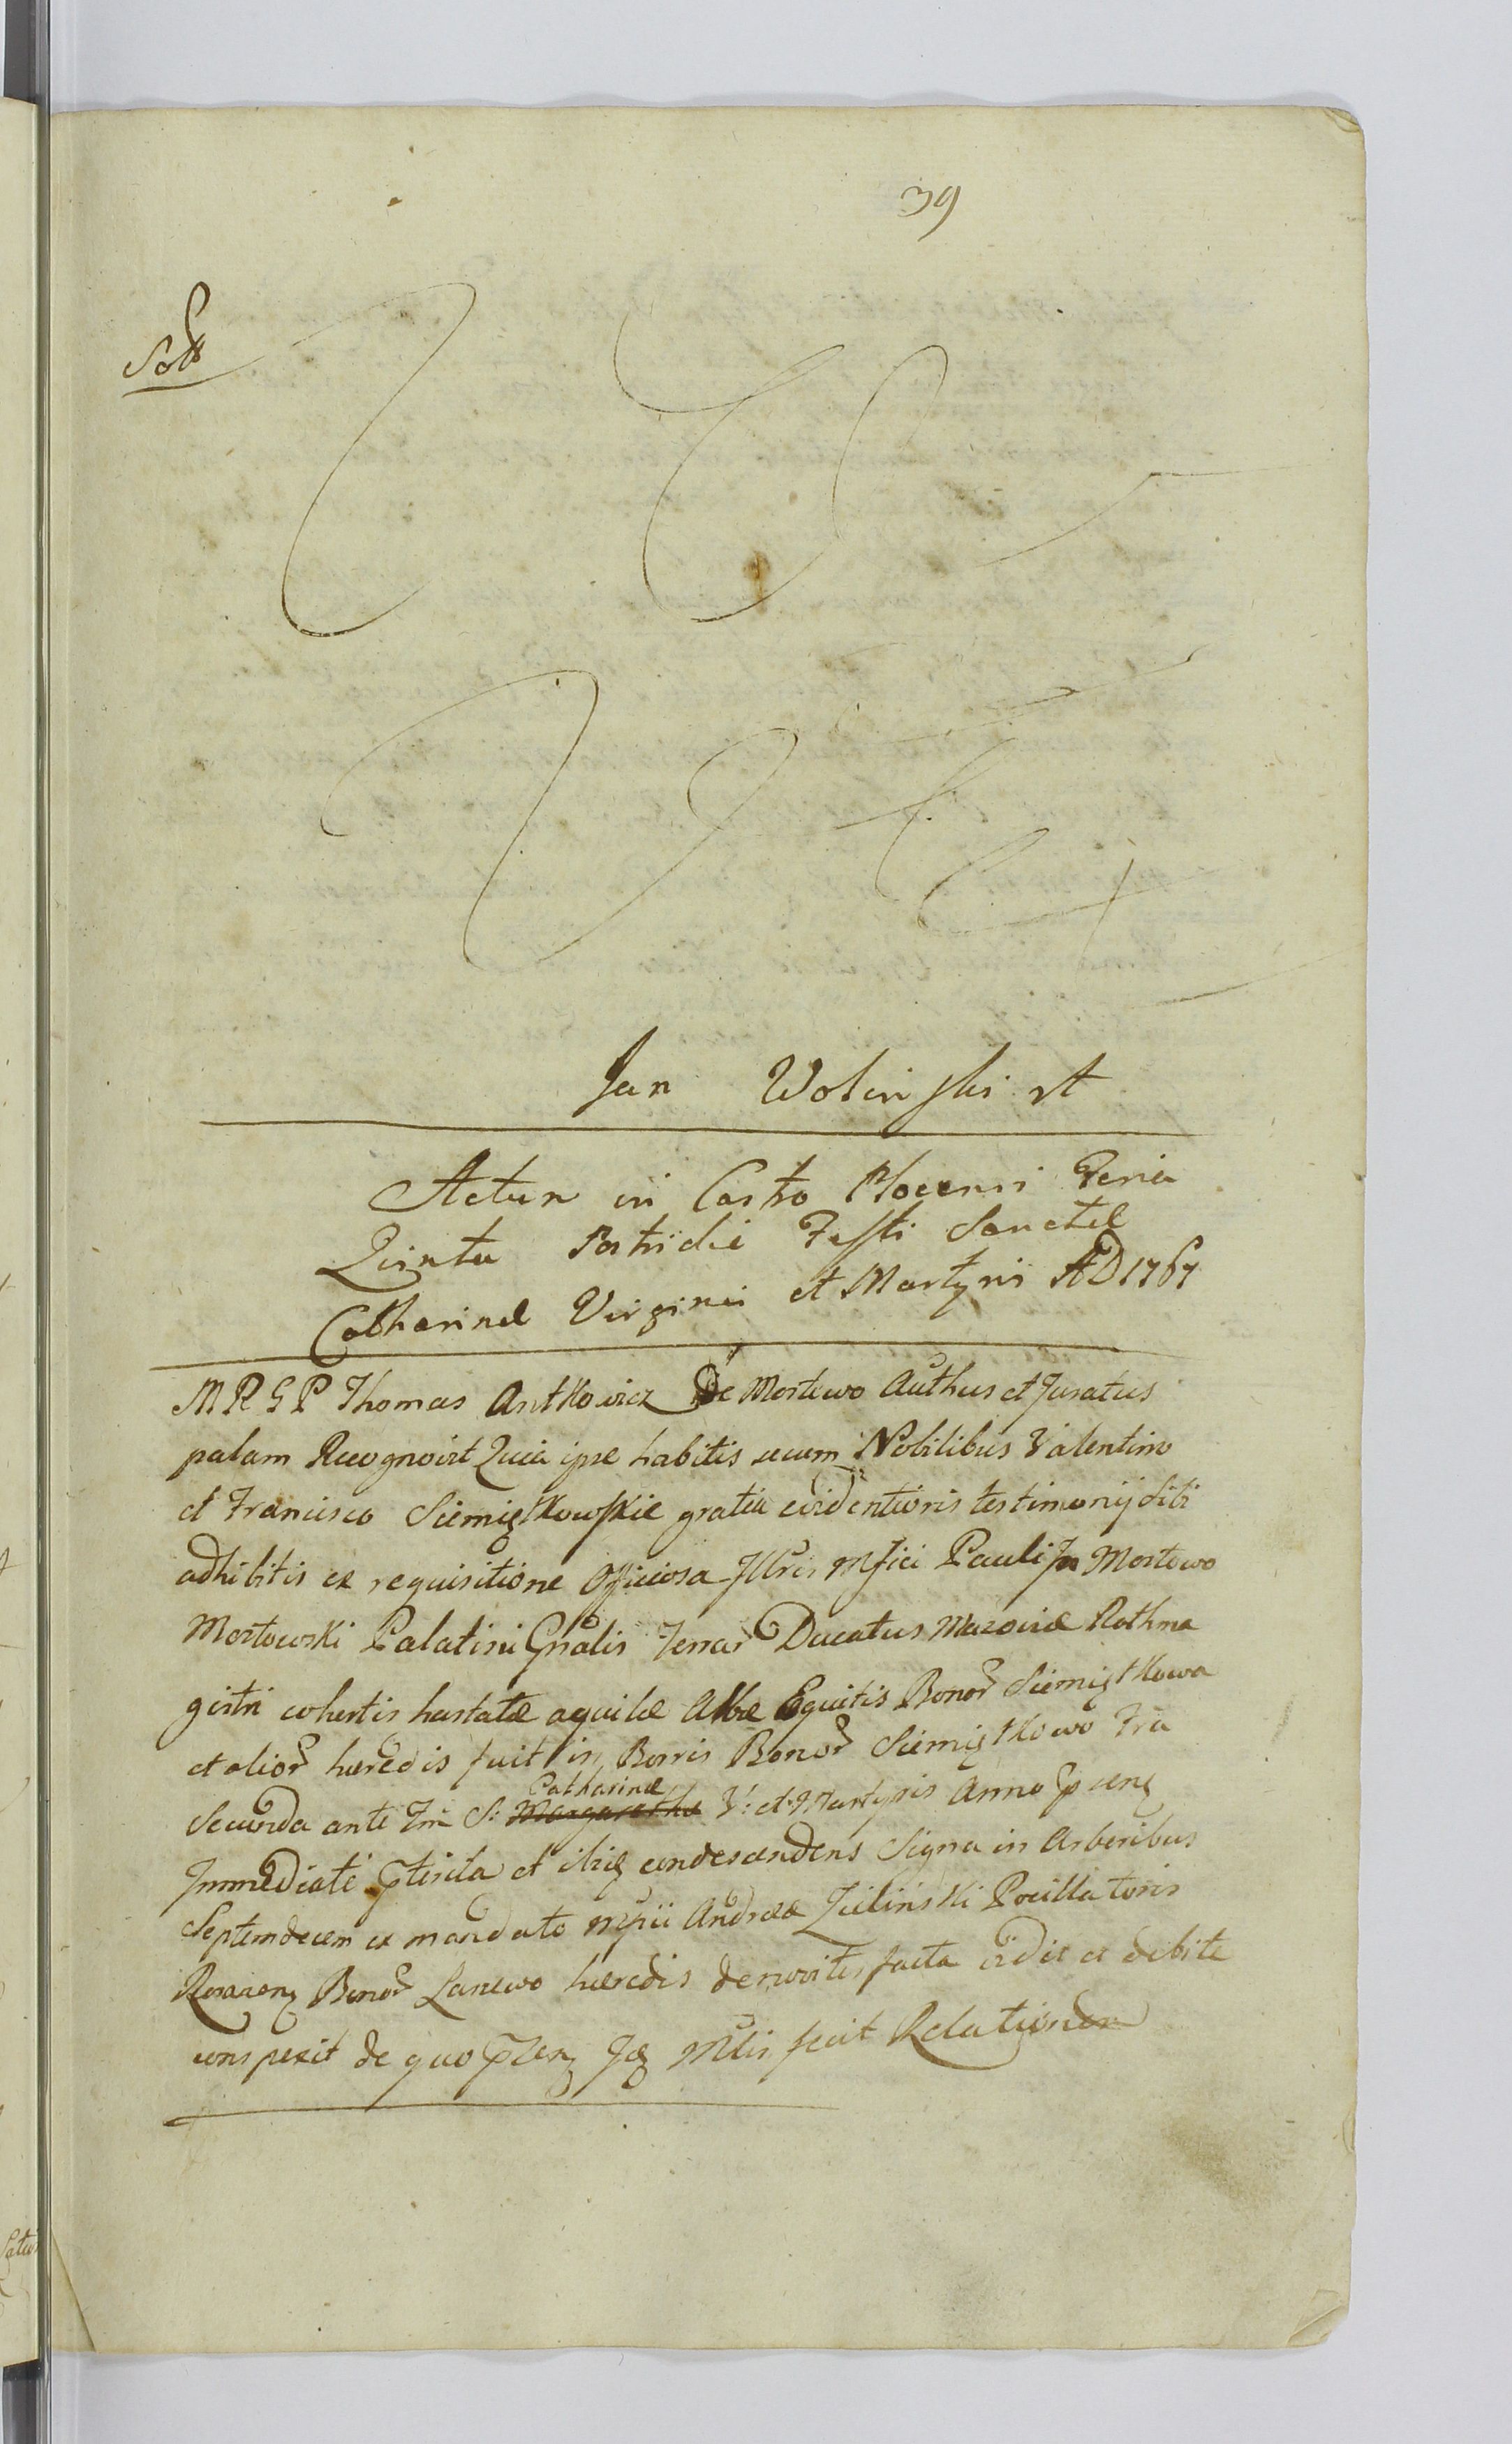 39
Jan Woliński
Actum in Castro Plocensi Feria
Quinta Postridie Festi Sanctæ
Catharinæ Virginis et Martyris AD 1767
MRGP Thomas Antkowicz De Mostowo Authus et Juratus
palam Recognovit Quia ipse habitis secum Nobilibus Valentino
et Francisco Siemiątkowskie gratia evidentioris testimonij sibi
adhibitis ex requisitione Officiosa Illris Mfici Pauli In Mostowo
Mostowski Palatini Gnalis Terrar Ducatus Mazoviæ Rothma
gistri cohortis hastatæ aquilæ Albæ Equitis Bonor Siemiątkowa
et alior hæredis fuit in Borris Bonor Siemiątkowo Fra
Secunda ante Fm S: Margarethæ Catharinæ V: et Martyris Anno psenq
Immediate pterita et ibiq condescendens Signa in Arboribus
Septemdecem ex mandato Mfici Andreæ Zielinski Pocillatoris
Rozanenq Bonor Lanewo hæredis denoviter facta vidit et debite
conspexit de quo psenq Idq Mtlis fecit Relationem